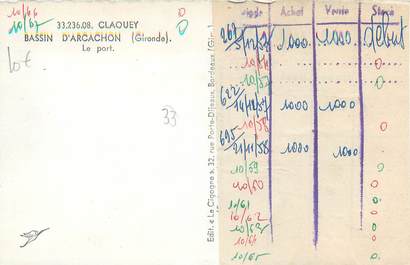 10/66 0
10/67 0
33.236.08. CLAOUEY
BASSIN D'ARCACHON (Gironde).
Le port.
lot
33
Edit. « La Cigogne », 32, rue Porte-Dijeaux, Bordeaux
Achat Vente Stock
5/12/52 1000 1000 début
10/56 0
10/57 0
622
14/12/57 1000 1000
10/58 0
695
21/11/58 1000 1000
10/59 0
10/60 0
10/61 0
10/62 0
10/63 0
10/64 0
10/65 0